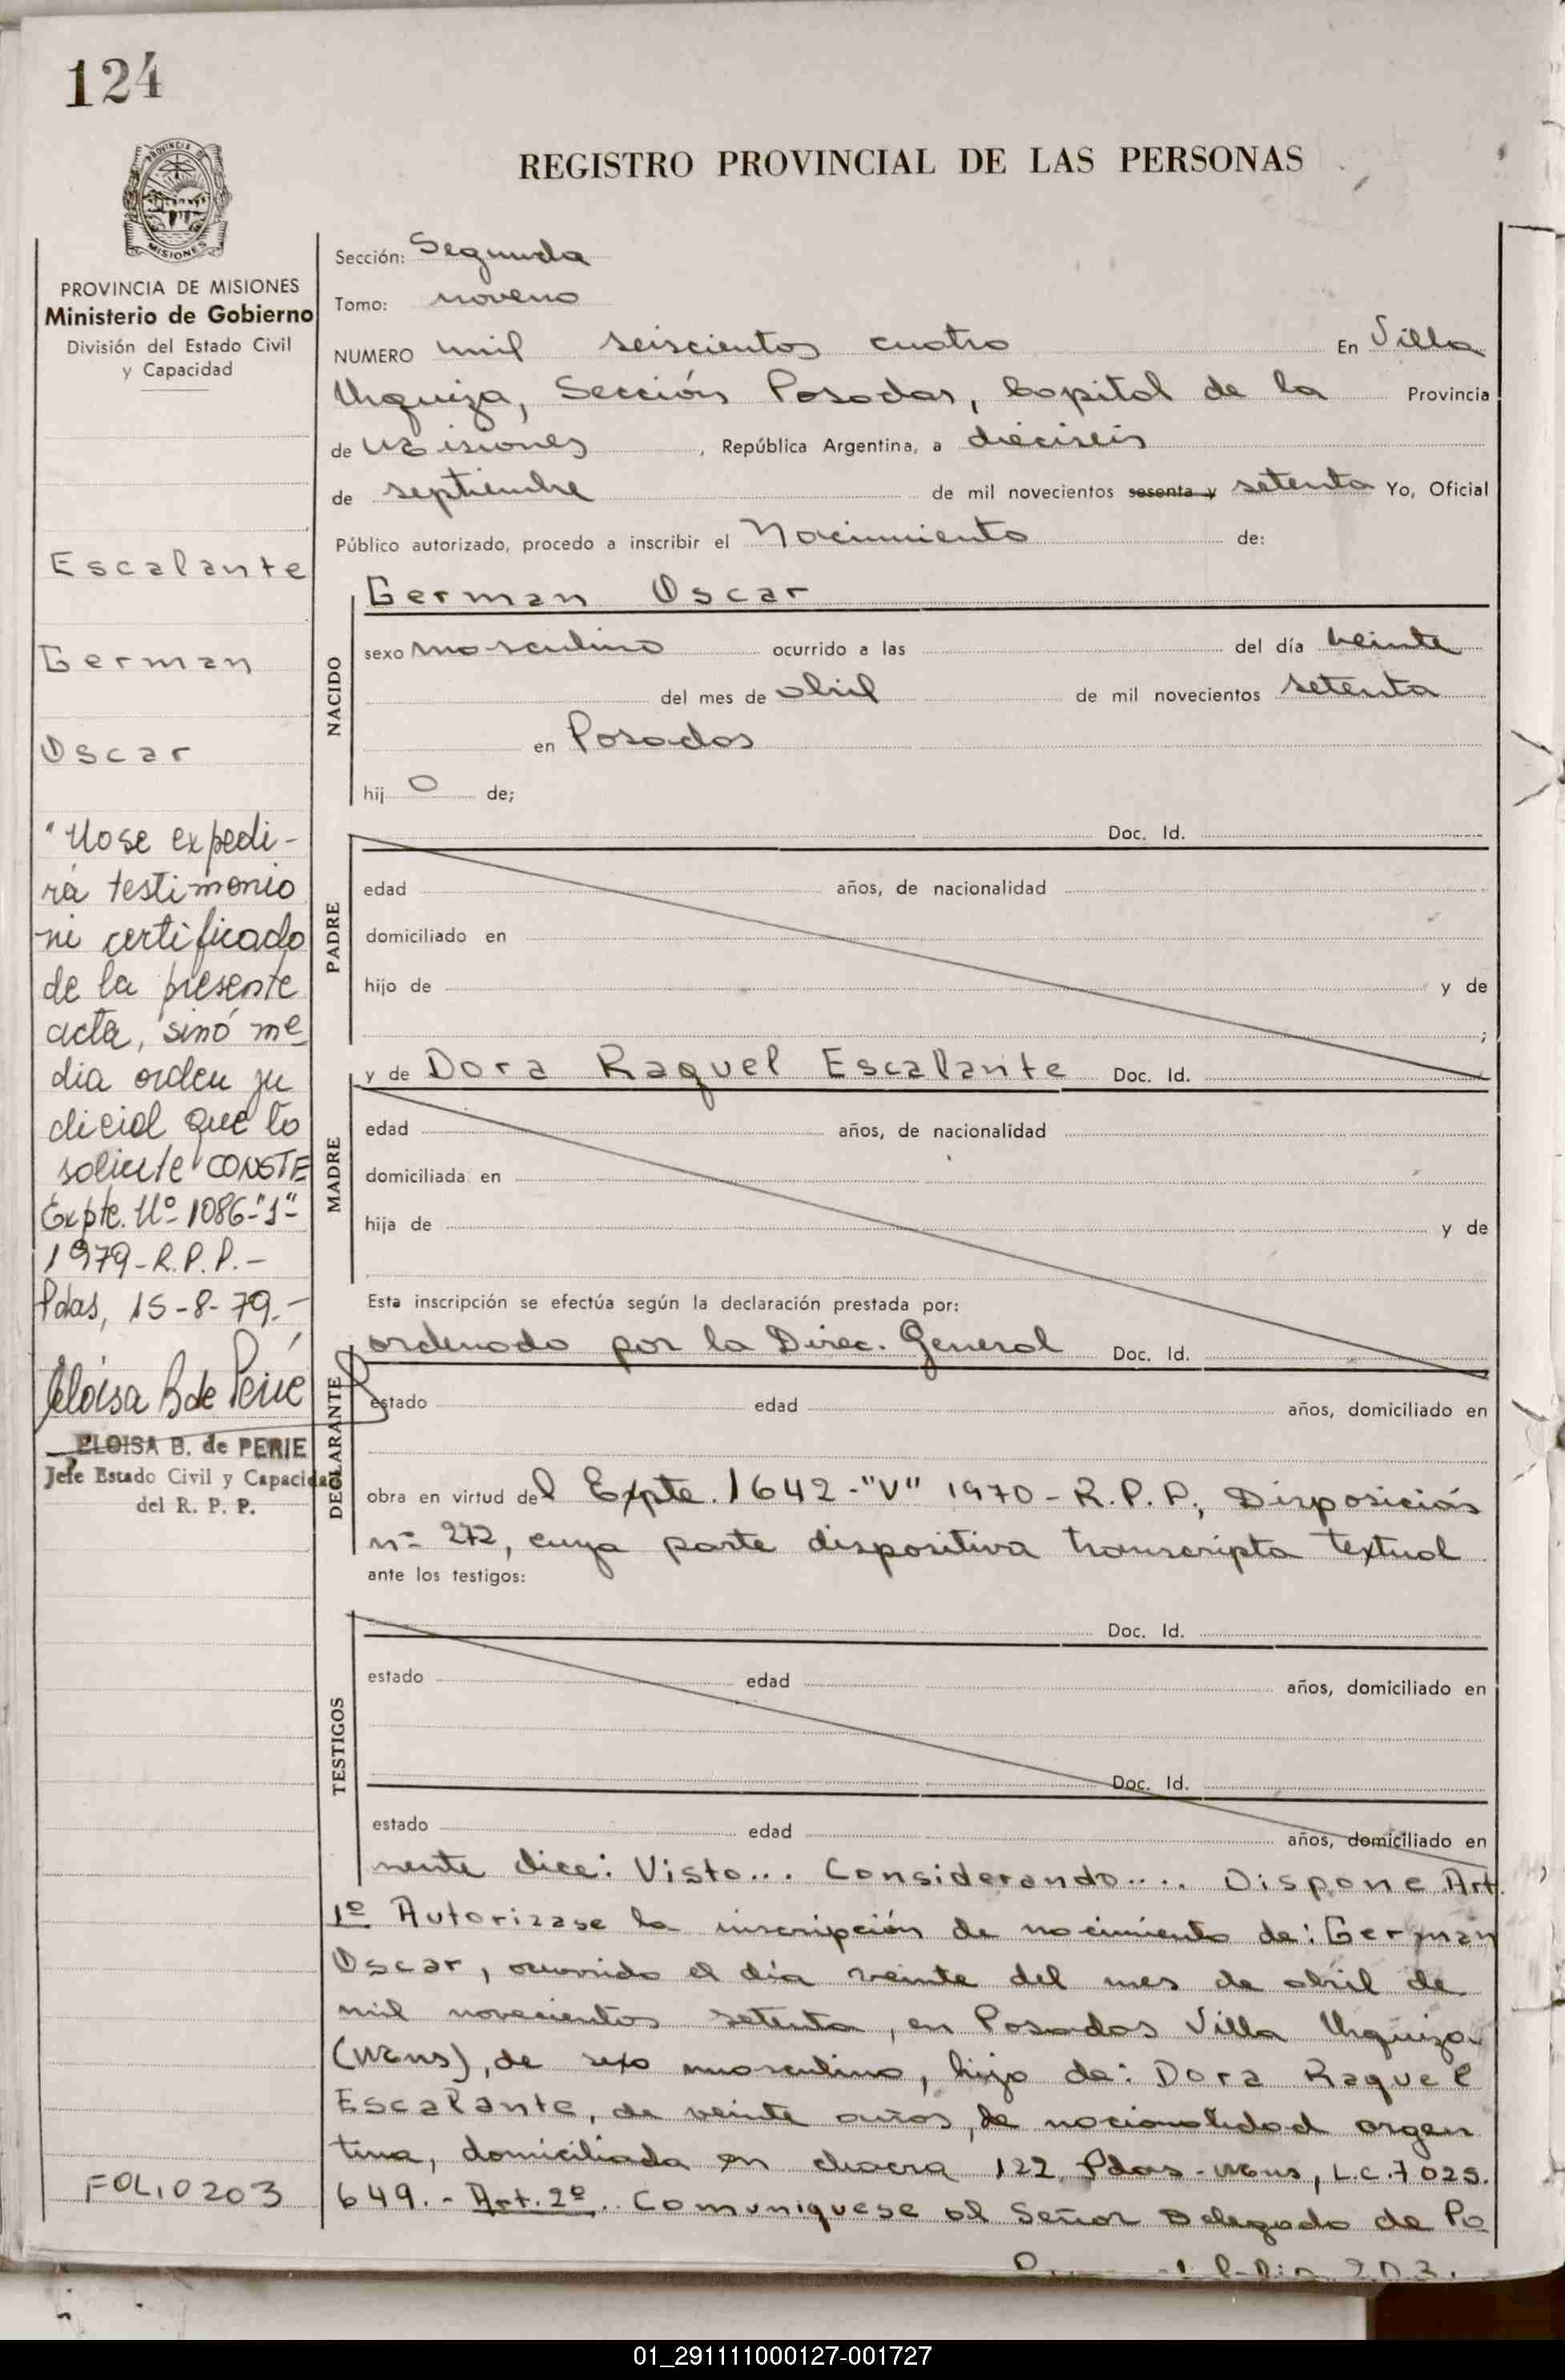 124
PROVINCIA DE
MISIONES
PROVINCIA DE MISIONES
Ministerio de Gobierno
División del Estado Civil
y Capacidad
Escalante
German
Oscar
"No se expedi-
rá testimonio
ni certificado
de la presente
acta, sinó me
dia orden ju
dicial que lo
solicite CONSTE
Expte. Nº 1086-"J"-
1979-R.P.P.-
Pdas, 15-8-79.-
Eloisa B de Perié
ELOISA B. de PERIE
Jefe Estado Civil y Capacidad
del R. P. P.
FOLIO 203
REGISTRO PROVINCIAL DE LAS PERSONAS
Sección: Segunda
Tomo: noveno
NUMERO mil seiscientos cuatro En Villa
Urquiza, Sección Posadas, Capital de la Provincia
de Misiones, República Argentina, a dieciseis
de septiembre de mil novecientos sesenta y setenta Yo, Oficial
Público autorizado, procedo a inscribir el Nacimiento de:
German Oscar
NACIDO
sexo masculino ocurrido a las del día veinte
del mes de abril de mil novecientos setenta
en Posadas
hij o de;
PADRE
Doc. Id.
edad años, de nacionalidad
domiciliado en
hijo de y de
;
y de Dora Raquel Escalante Doc. Id.
MADRE
edad años, de nacionalidad
domiciliada en
hija de y de
Esta inscripción se efectúa según la declaración prestada por:
ordenado por la Direc. General Doc. Id.
DECLARANTE
estado edad años, domiciliado en
obra en virtud del Expte. 1642-"V" 1970-R.P.P., Disposición
nº 272, cuya parte dispositiva transcripta textual
ante los testigos:
TESTIGOS
Doc. Id.
estado edad años, domiciliado en
Doc. Id.
estado edad años, domiciliado en
mente dice: Visto... Considerando.... Dispone Art.
1º Autorizase la inscripción de nacimiento de: German
Oscar, ocurrido el día veinte del mes de abril de
mil novecientos setenta, en Posadas Villa Urquiza
(Mnes), de sexo masculino, hijo de: Dora Raquel
Escalante, de veinte años, de nacionalidad argen
tina, domiciliada en chacra 122, Pdas-Mnes, L.C. 7 025.
649.- Art. 2º. Comuniquese al Señor Delegado de Po
203.
01_291111000127-001727